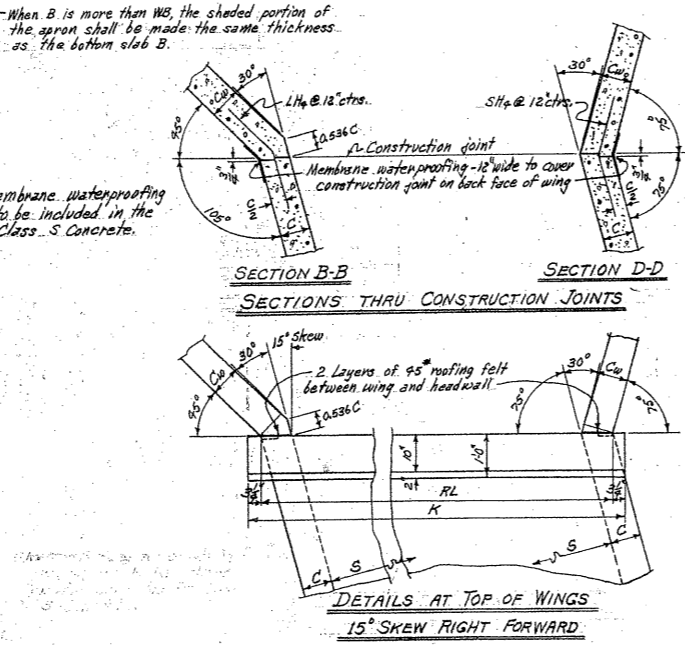 When B is more than WB, the shaded portion of
the apron shall be made the same thickness
as the bottom slab B.
embrane waterproofing
to be included in the
Class S Concrete.
30°
Cw
LH4 @ 12" ctrs.
0.536C
45°
105°
C/2
C
Construction joint
Membrane waterproofing - 12" wide to cover
construction joint on back face of wing
30°
Cw
SH4 @ 12" ctrs.
75°
75°
C/2
C
SECTION B-B
SECTION D-D
SECTIONS THRU CONSTRUCTION JOINTS
15° Skew
30°
Cw
45°
0.536C
2 Layers of 45# roofing felt
between wing and headwall
30°
Cw
75°
75°
10"
1'-0"
2"
RL
K
C
S
S
C
DETAILS AT TOP OF WINGS
15° SKEW RIGHT FORWARD